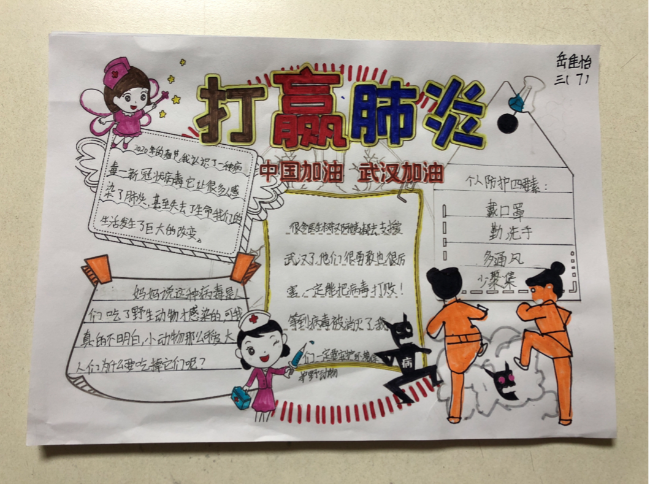 岳佳怡
三(7)
打赢肺炎
中国加油 武汉加油
2020年的春节我认识了一种病
毒—新冠状病毒它让很多人感
染了肺炎,甚至失去了生命我们的
生活发生了巨大的改变。
个人防护四要素:
戴口罩
勤洗手
多通风
少聚集
很多医生和护士阿姨都赶去支援
武汉了,他们很勇敢也很厉
害,一定能把病毒打败!
等到病毒被消灭了我
们一定要
护野动物
妈妈说这种病毒是人
们吃了野生动物才感染的,可我
真的不明白,小动物那么可爱大
人们为什么要吃掉它们呢?
病